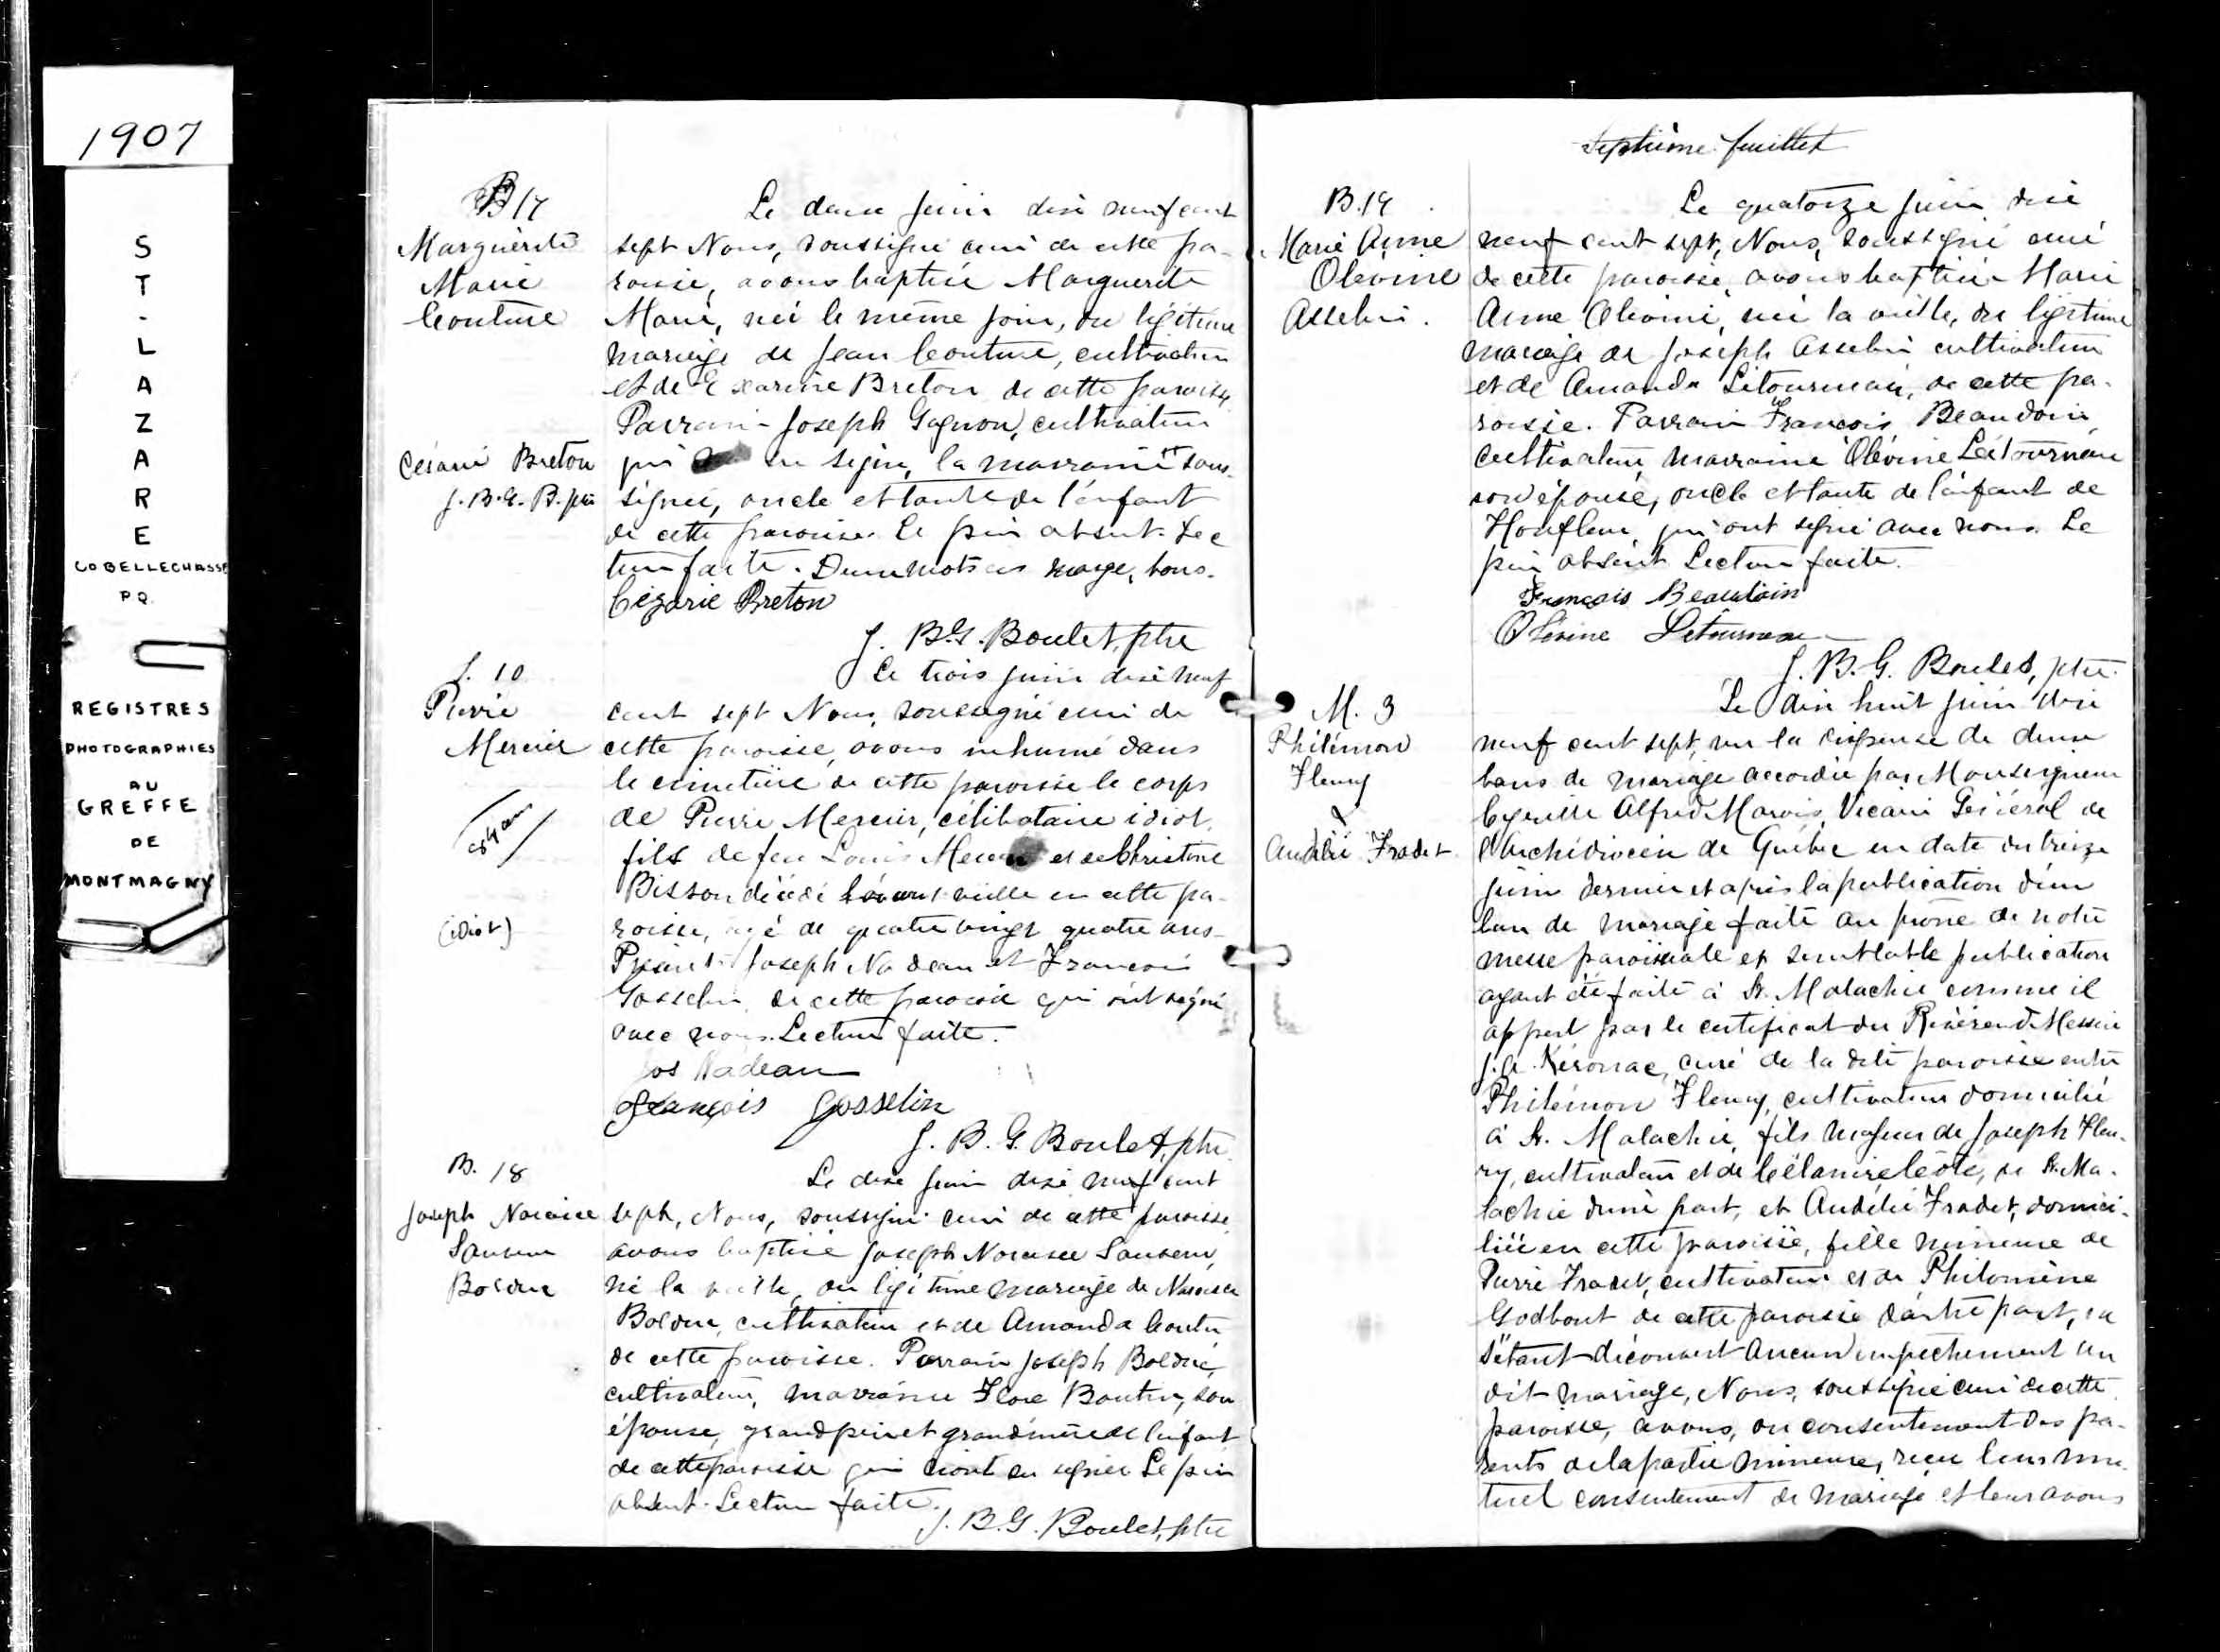 1907
S
T
-
L
A
Z
A
R
E
CO BELLECHASSE
P Q
REGISTRES
PHOTOGRAPHIES
AU
GREFFE
DE
MONTMAGNY
B 17
Marguerite
Marie
Couture
Césarie Breton
J. B. G. B. ptre
Le deux juin dix neuf cent
sept Nous, soussigné curé de cette pa-
roisse, avons baptisé Marguerite
Marie, née le même jour, du légitime
mariage de Jean Couture, cultivateur
et de Exarine Breton de cette paroisse
Parrain Joseph Gagnon, cultivateur
qui su signer, la marraine sous-
signée, oncle et tante de l'enfant
de cette paroisse. Le père absent. Lec
ture faite. Deux mots en marge, bons.
Cézarie Breton
J. B. G. Boulet, ptre
S. 10
Pierre
Mercier
84 ans
(idiot)
Le trois juin dix neuf
cent sept Nous, soussigné curé de
cette paroisse, avons inhumé dans
le cimetière de cette paroisse le corps
de Pierre Mercier, célibataire idiot,
fils de feu Louis Mercier et de Christine
Bisson décédé l'avant veille en cette pa-
roisse, agé de quatre vingt quatre ans-
Présents Joseph Nadeau et François
Gosselin de cette paroisse qui ont signé
avec nous. Lecture faite.
Jos Nadeau
François Gosselin
J. B. G. Boulet, ptre
B. 18
Joseph Narcisse
Sauveur
Bolduc
Le dix juin dix neuf cent
sept, Nous, soussigné curé de cette paroisse
avons baptisé Joseph Narcisse Sauveur,
né la veille, du légitime mariage de Narcisse
Bolduc, cultivateur et de Amanda
de cette paroisse. Parrain Joseph Bolduc,
cultivateur, marraine Flore Boutin, son
épouse, grand père et grand'mère de l'enfant
de cette paroisse qui n'ont su signer Le père
absent. Lecture faite.
J. B. G. Boulet, ptre
Septième feuillet
B. 19
Marie Anne
Olévine
Asselin.
Le quatorze juin dix
neuf cent sept, Nous, soussigné curé
de cette paroisse, avons baptisé Marie
Anne Olévine, née la veille, du légitime
mariage de Joseph Asselin cultivateur
et de Amanda Létourneau, de cette pa-
roisse. Parrain François Beaudoin,
cultivateur, marraine Olévine Létourneau
son épouse, oncle et tante de l'enfant de
Honfleur, qui ont signé avec nous. Le
père absent Lecture faite.
François Beaudoin
Olévine Létourneau
J. B. G. Boulet, ptre.
M. 3
Philémon
Fleury
&
Audélie Fradet
Le dix huit juin dix
neuf cent sept, vu la dispense de deux
bans de mariage accordée par Monseigneur
Cyrille Alfred Marois, Vicaire Général de
l'Archidiocèse de Québec en date du treize
juin dernier et après la publication d'un
ban de mariage faite au prône de notre
messe paroissiale et semblable publication
ayant été faite à St. Malachie comme il
appert par le certificat du Révérend Messire
J. A. Kérouac, curé de la dite paroisse entre
Philémon Fleury, cultivateur domicilié
à St. Malachie, fils majeur de Joseph Fleu-
ry, cultivateur et de Célanire Côté, de St. Ma-
lachie d'une part, et Audélie Fradet, domici-
liée en cette paroisse, fille mineure de
Pierre Fradet, cultivateur et de Philomène
Godbout de cette paroisse d'autre part, ne
s'étant découvert aucun empêchement au
dit mariage, Nous, soussigné curé de cette
paroisse, avons, du consentement des pa-
rents de la partie mineure, reçu leur mu-
tuel consentement de mariage et leur avons